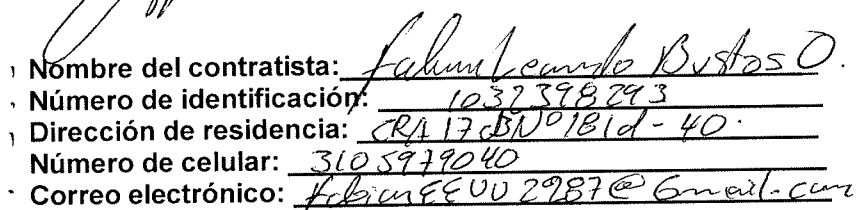 Nombre del contratista: Fabian Leandro Bustos O.
Número de identificación: 1032398293
Dirección de residencia: CRA 17 Nº 181d - 40.
Número de celular: 3105979040
Correo electrónico: FabianEEUU2987@Gmail.com